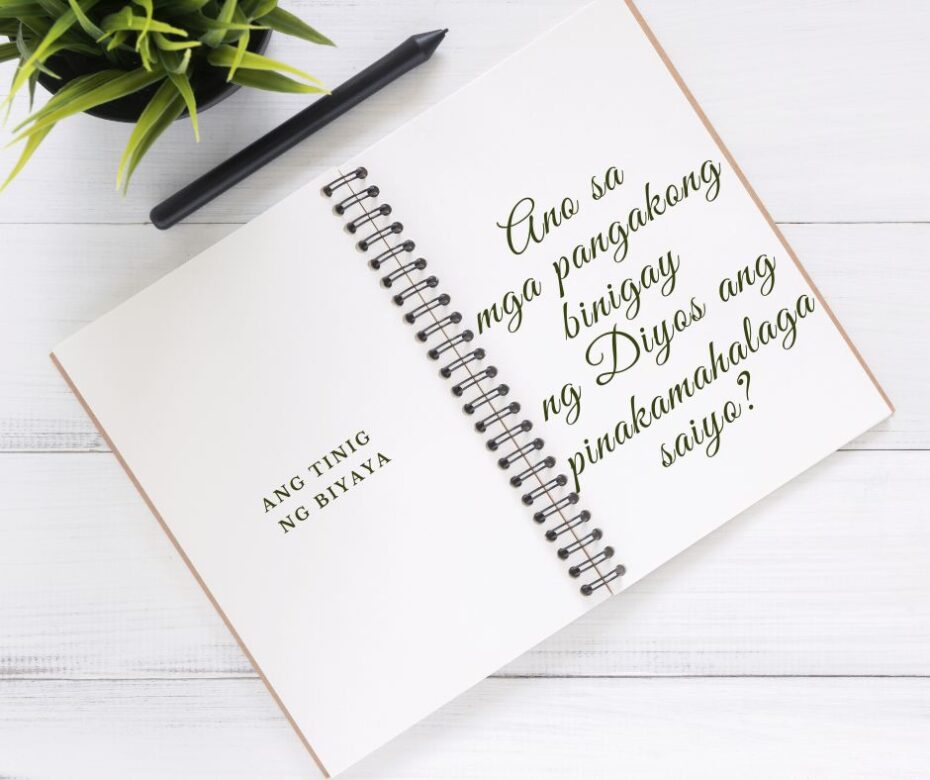 ANG TINIG
NG BIYAYA
Ano sa
mga pangakong
binigay
ng Diyos ang
pinakamahalaga
saiyo?